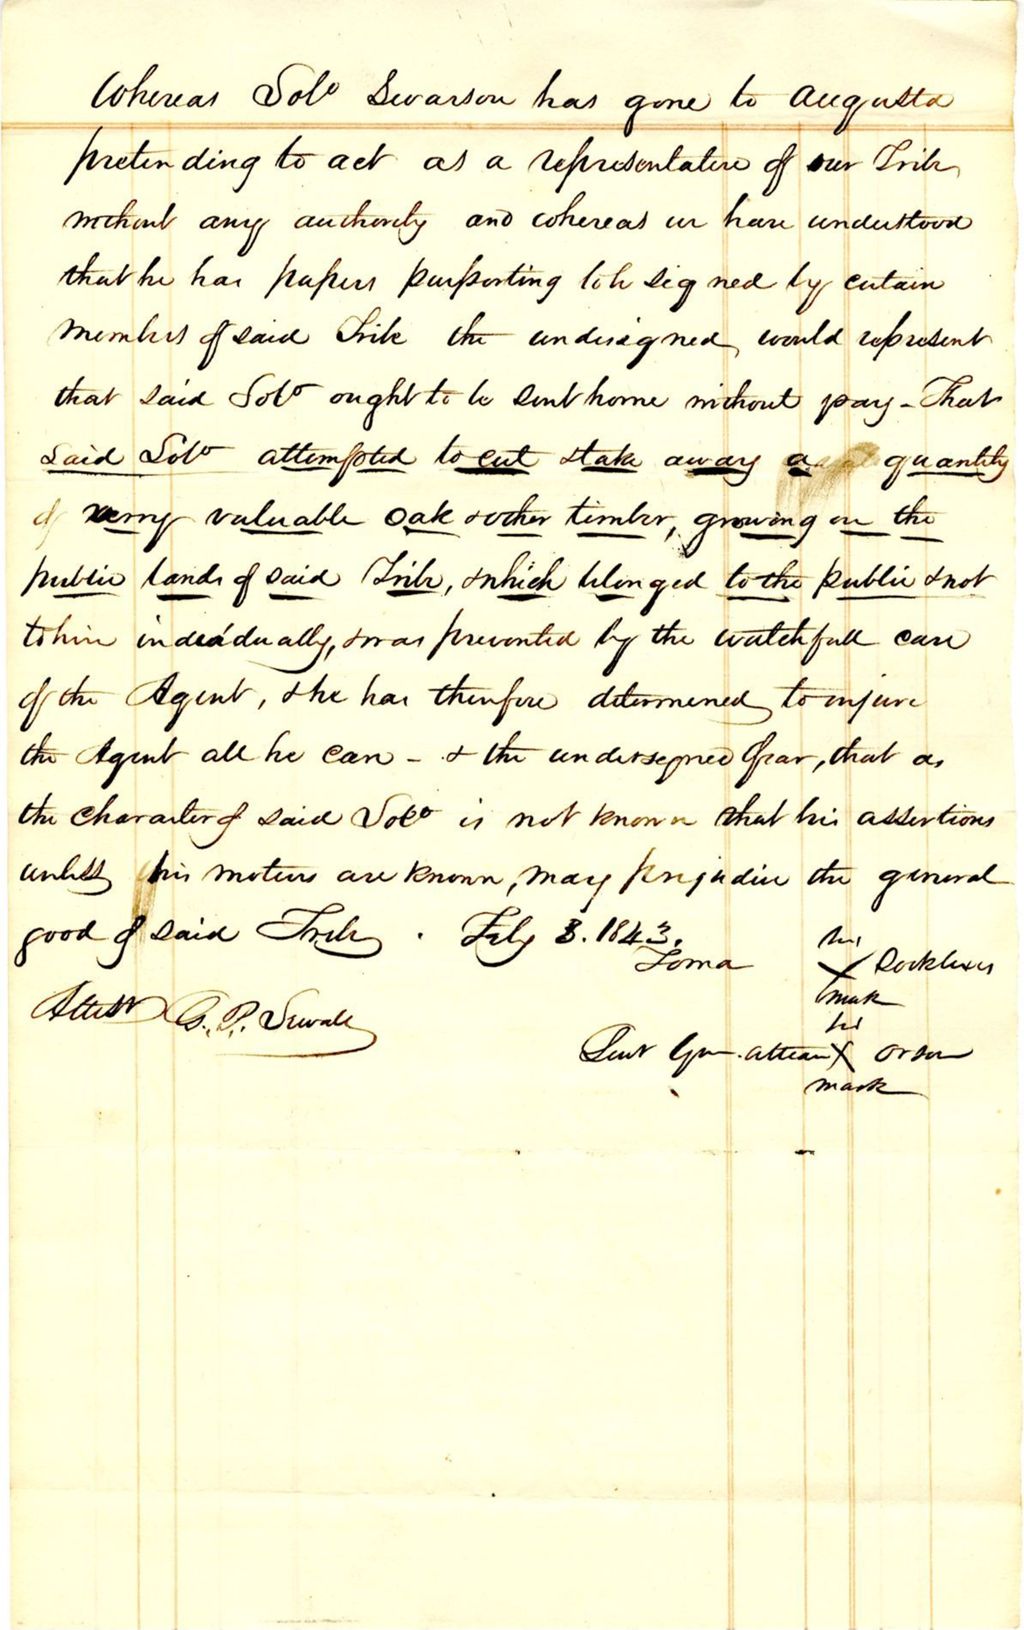 Whereas Solo Swarson has gone to Augusta
pretending to act as a representative of our Tribe
without any authority and whereas we have understood
that he has papers purporting to be signed by certain
members of said Tribe the undersigned, would represent
that said Solo ought to be sent home without pay – That
said Solo attempted to cut & take away a quantity
of verry valuable oak & other timber, growing on the
public lands of said Tribe, & which belonged to the public & not
to him individually, & was prevented by the watchfull care
of the Agent, & he has therefore determined to injure
the Agent all he can – & the undersigned fear, that as
the character of said Solo is not known that his assertions
unless his motives are known, may prejudice the general
good of said Tribe . Feby 8. 1843.
his
Toma X Socklexis
mark
Attest G. P. Sewall
his
Lieut Gov. Attean X Orson
mark